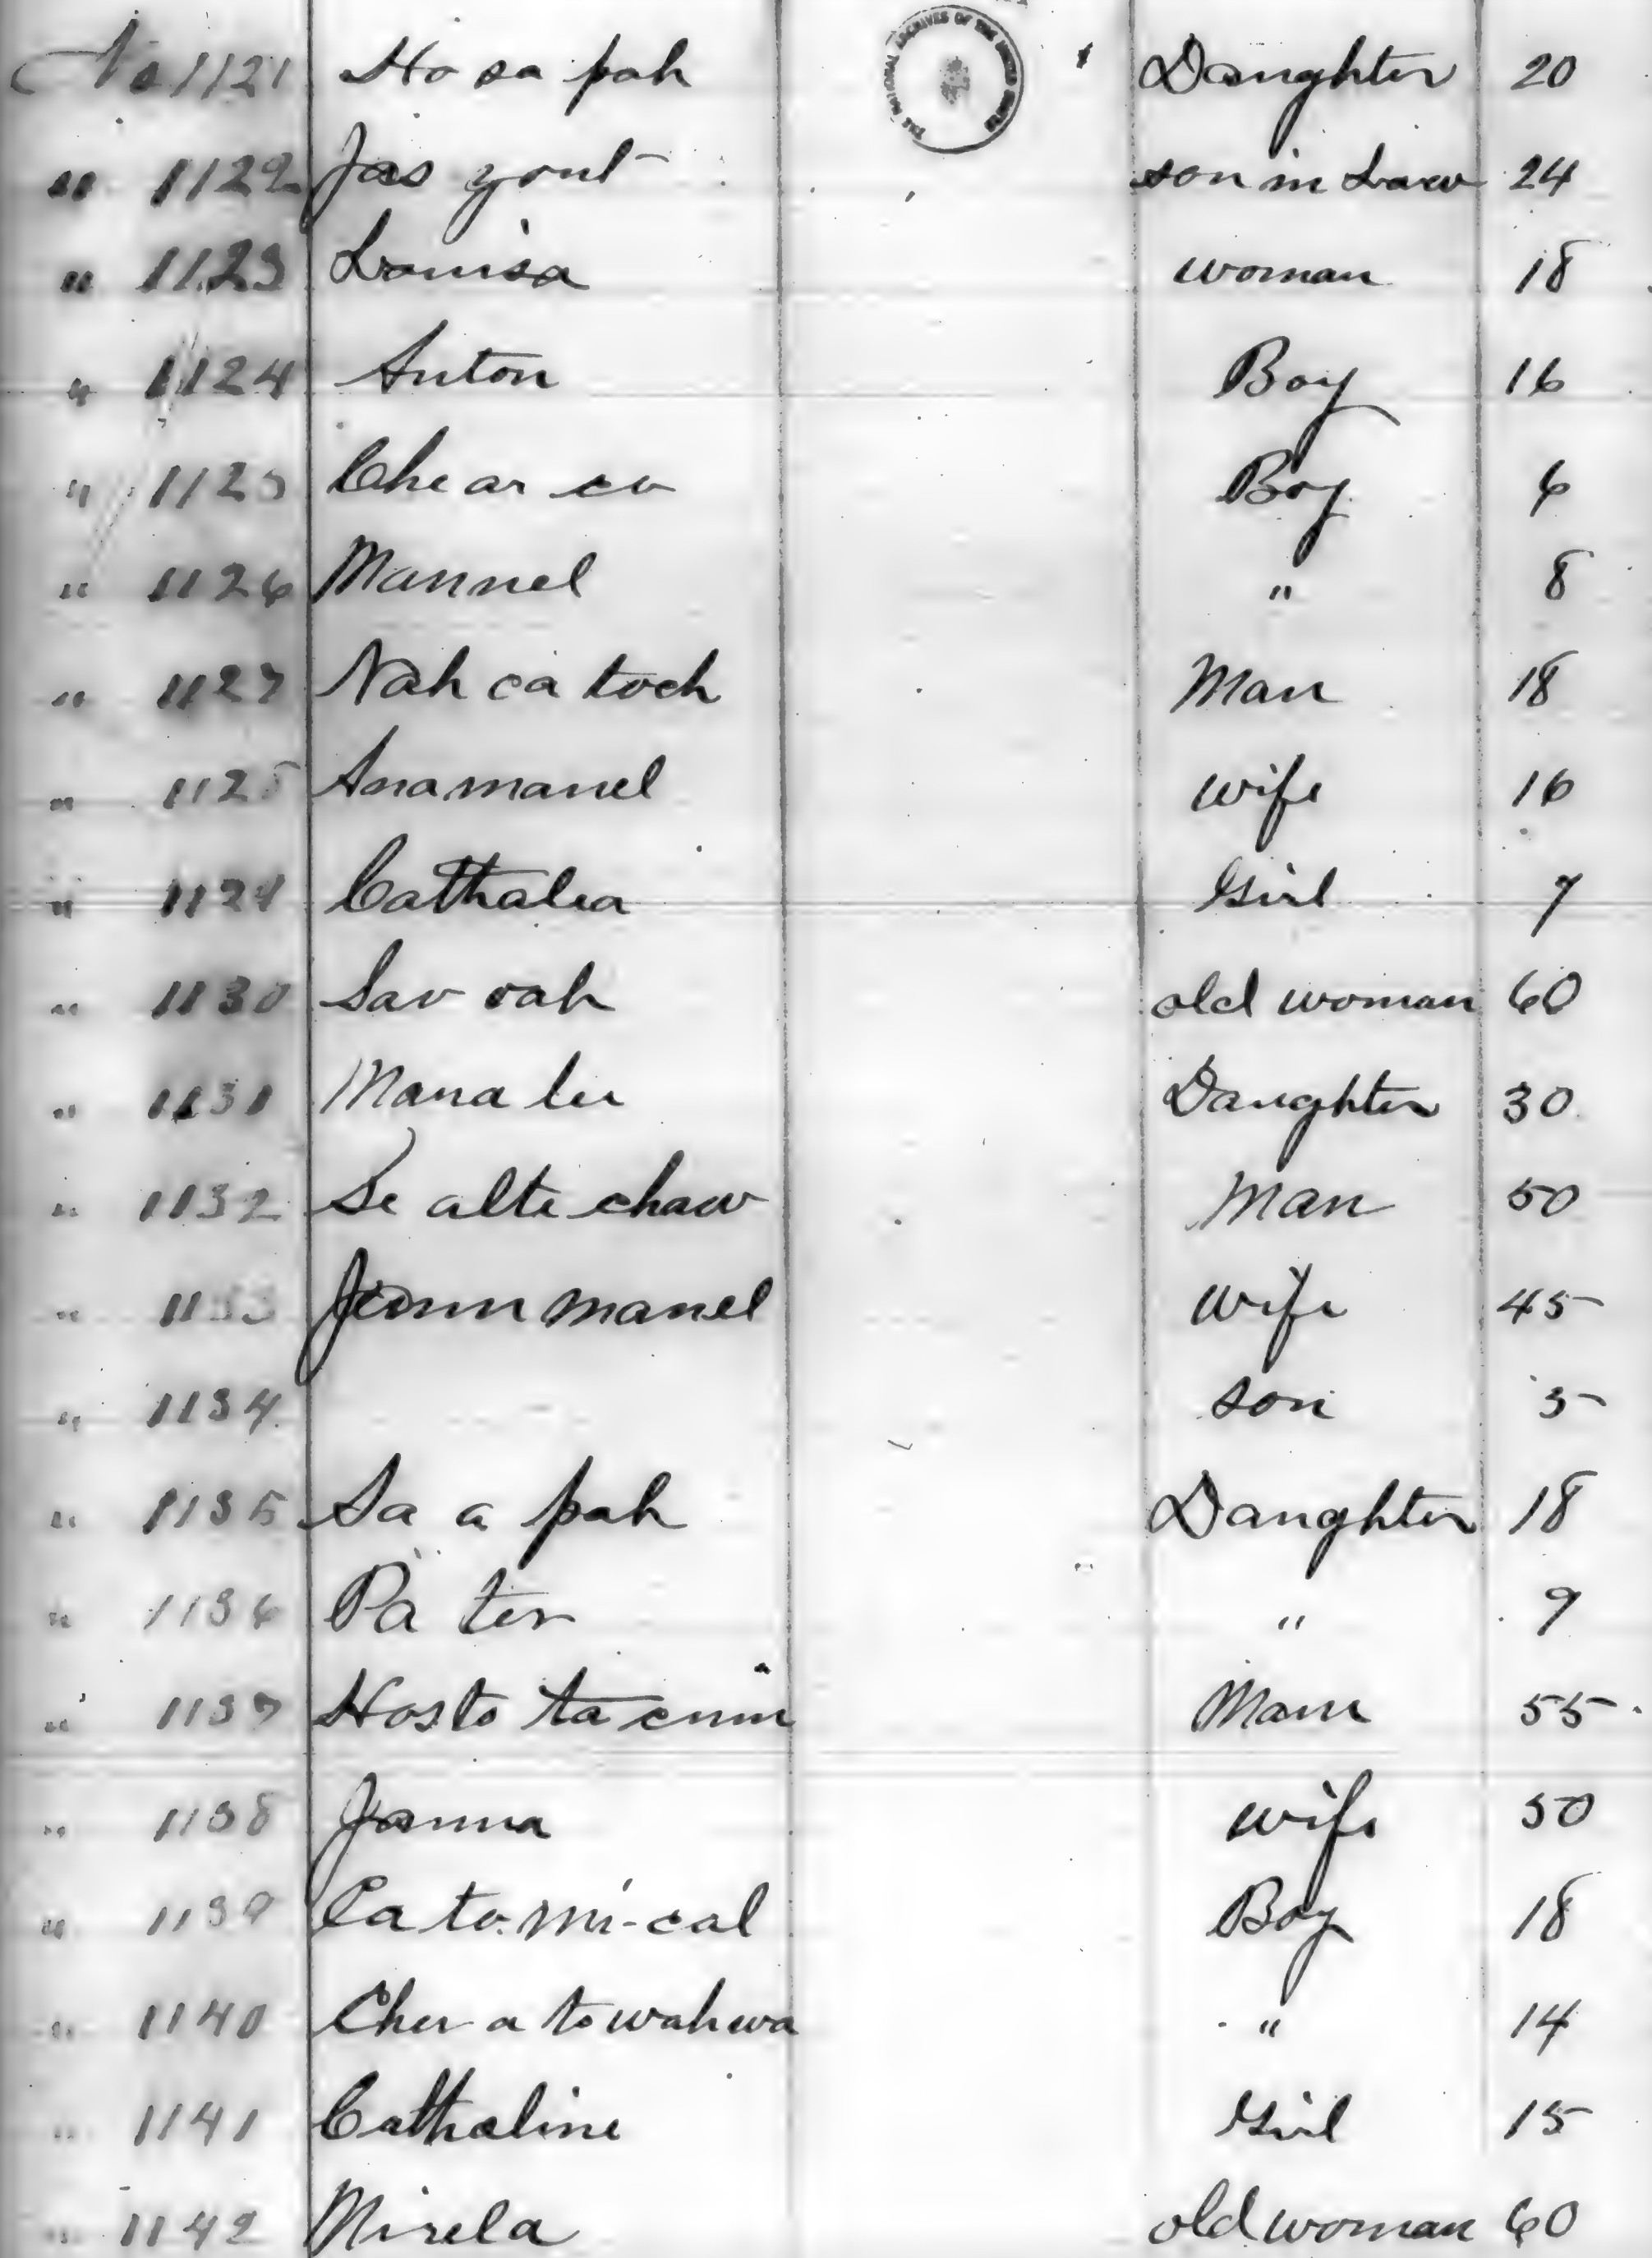 No 1121 Ho sa pah Daughter 20
" 1122 Jas yout son in Law 24
" 1123 Louisa woman 18
" 1124 Anton Boy 16
" 1125 Che ar co Boy 6
" 1126 Mannel " 8
" 1127 Nah ca toch Man 18
" 1128 Anamanel wife 16
" 1129 Cathalea Girl 7
" 1130 Sav oah old woman 60
" 1131 Mana lu Daughter 30
" 1132 Se alte chaw Man 50
" 1133 manel wife 45
" 1134 son 5
" 1135 Sa a pah Daughter 18
" 1136 Pa ter " 9
" 1137 Hosto ta cum Man 55
" 1138 Janna wife 50
" 1139 Ca to mi-cal Boy 18
" 1140 Cher a to wah wa " 14
" 1141 Cathaline Girl 15
" 1142 Mirela old woman 60
THE NATIONAL ARCHIVES OF THE UNITED STATES